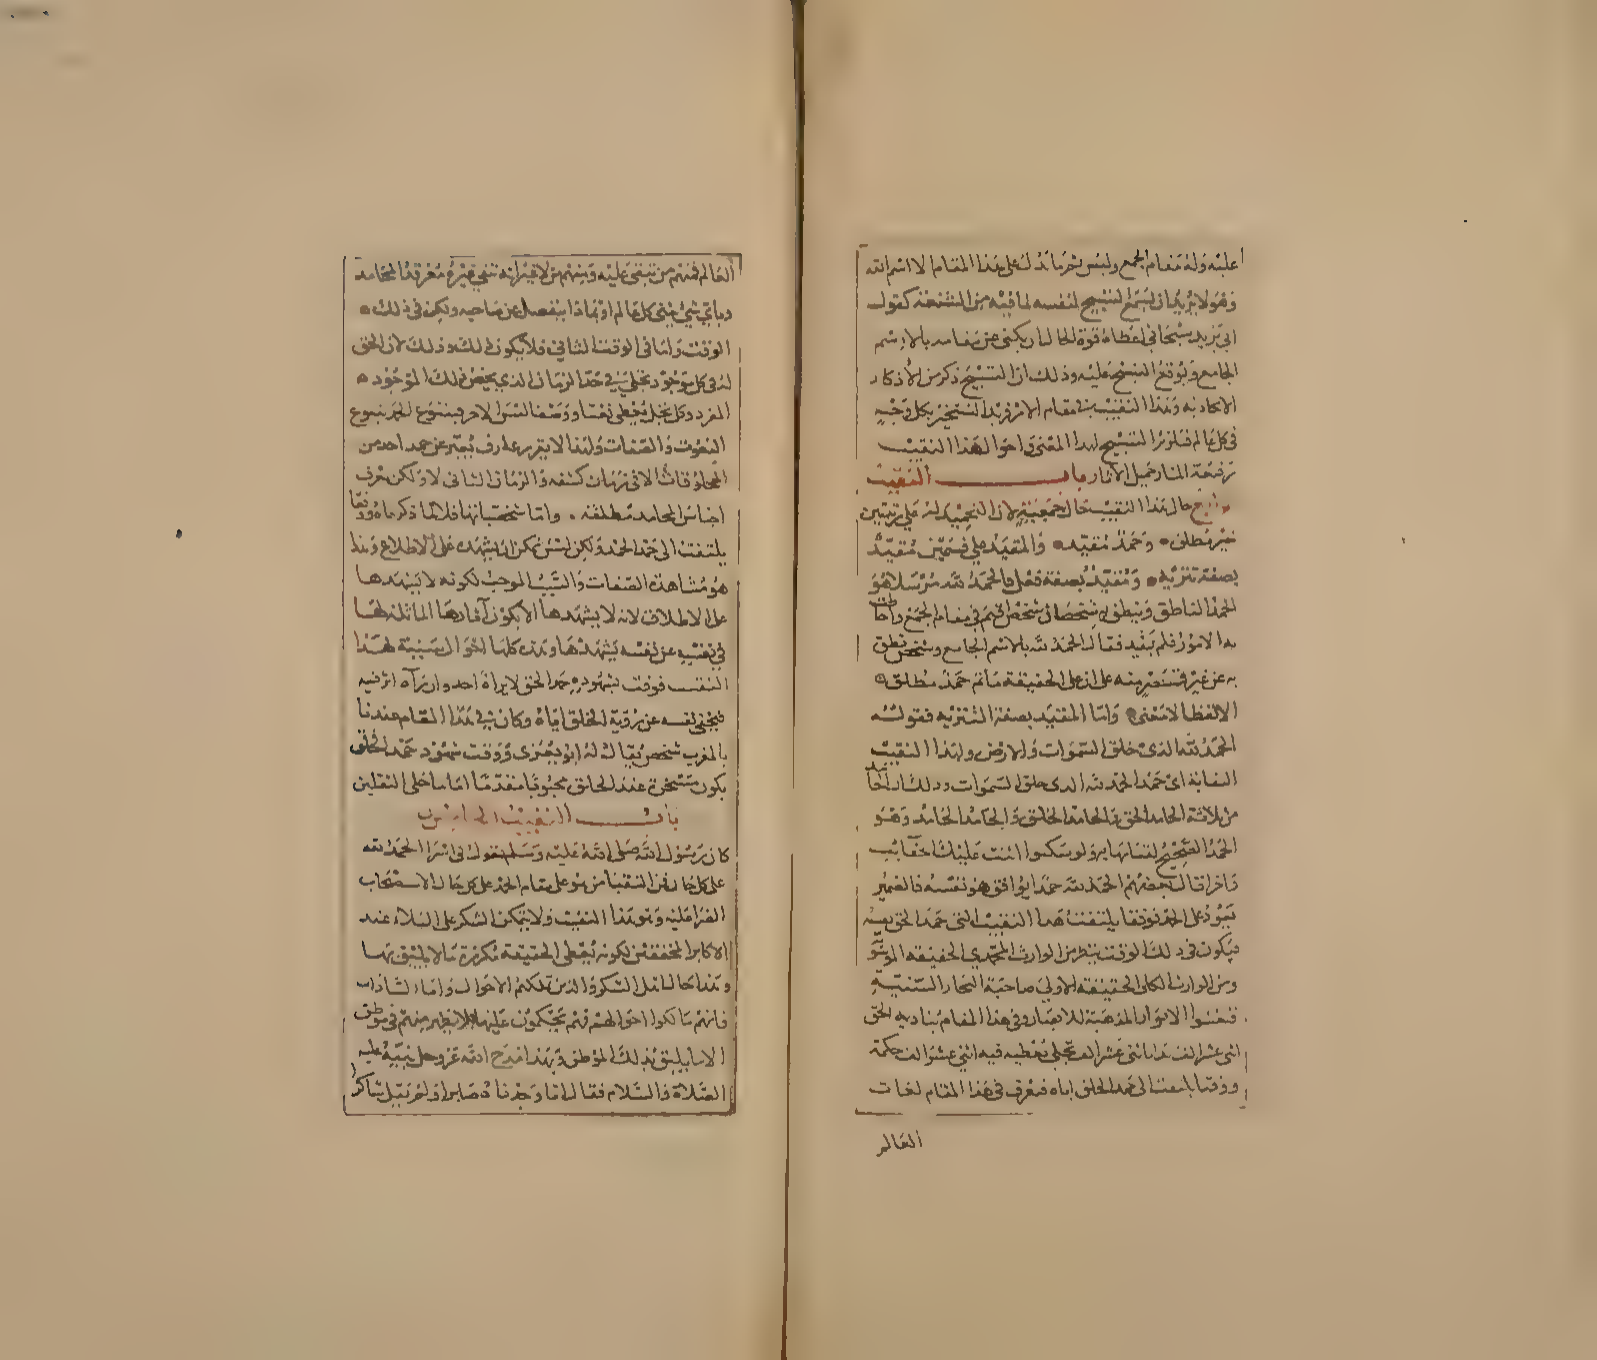 عليه وله مقام الجمع وليس ثم ما يدل على هذا المقام الا اسم الله
وهو لا يريد ان يسمع التسبيح لنفسه لما فيه من المشقة كقول
ابي يزيد سبحاني اعطاه قوة الحال ان يكنى عن مقامه بالاسم
الجامع ويوقع التسبيح عليه وذلك ان التسبيح ذكر من الأذكار
وهذا النقيب في مقام الامر فريد التسخير بكل وجه
في كل عالم فيلزم التسبيح لهذا المعنى واحوال هذا النقيب
المنار جميل الاثار باب النقيب
الرابع حال هذا النقيب حال جمعية لان التحميد له على رتبتين
خير مطلق وحمد مقيد والمقيد على قسمين مقيد
بصفة تنزيه ومقيد بصفة فعل فالحمد لله مرسلا هو
الحمد الناطق وينطق به شخصان شخص قيم في مقام الجمع
به الامور فلم يقيد فقال الحمد لله بالاسم الجامع وشخص نطق
به عن غير على ان على الحقيقة ما ثم حمد مطلق
الا لفظا لا معنى واما المقيد بصفة التنزيه فقوله
الحمد لله الذي خلق السموات والارض ولهذا النقيب
حمد الحمد لله الذي خلق السموات وذلك ان
من ثلاثة الحامد الحق والحامد الخلق والحامد الحامد وهو
الحمد الصحيح
واخر اقال بعضهم الحمد لله حمدا يوافق هو نفسه فالضمير
يعود على الحمد فوقفا يلتفت هذا النقيب الى حمد الحق نفسه
فيكون في ذلك الوقت ينظر من الوارث المحمدي الحقيقة
ومن الوارث الكلي الحقيقة الاولى صاحبة البحار السنية
الانوار المذهبة للابصار وفي هذا المقام يناديه الحق
اثنى عشر الف ندا باثنى عشر الف تجلي يعطيه فيه اثني عشر الف حكمة
ووقتا يلتفت الى حمد الخلق اياه فيعرف في هذا المقام لغات
العالم
العالم فمنهم من تبقى عليه ومنهم من لا غير انه تبقى عنده معرفة المحامد
وباي شي يثنى كل عالم او بماذا ينفصل عن صاحبه ولكن في ذلك
الوقت واما في الوقت الثاني فلا يكون له ذلك وذلك لان الحق
له في كل موجود تجلي في حد الزمان الذي يخص ذلك الموجود
الفرد وكل تجل يعطي نعتا ووصفا ليس الاخر فيتنوع الحمد بتنوع
النعوت والصفات ولهذا لا يقرر عارف يعبر عن حمد احد من
المخلوقات الا في زمان كشفه والزمان الثاني لا ولكن يعرف
اجناس المحامد مطلقة واما شخصياتها فلا لما ذكرناه ووقتا
يلتفت الى حمد الحمد ولكن ليس يمكن ان يشهده على الاطلاع وهذا
هو مشاهدة الصفات والسبب الموجب لكونه لا يشهدها
على الاطلاق لانه لا يشهدها الا كون اثارها الماثلة لها
في نفسه عن نفسه يشهدها وهذه كلها احوال سنية لهذا
النقيب فوقت شهوده حمد الحق لا يراه احد وان رآه اثر فيه
فيخفي نفسه عن رؤية الخلق اياه وكان في هذا المقام عندنا
بالمغرب شخص يقال له ابو يعزى ووقت شهود حمد الخلق
يكون مسخرة عند الخلائق محبوبا مقدما اماما على الثقلين
باب النقيب الخامس
كان رسول الله صلى الله عليه وسلم يقول في الضرا الحمد لله
على كل حال فمن النقبا من هو على مقام الحمد على كل حال لاستصحاب
الضر عليه وهو هذا النقيب ولا يتمكن الشكر على البلاء عند
الاكابر المحققين لكونه يعطي الحقيقة مكررة ما لا يليق بها
وهذا حال اهل السكر والذين تملكهم الاحوال واما السادات
فانهم ملكوا احوالهم فهم يحكمون عليها فلا يظهر منهم في موطن
الا ما يليق بذلك الموطن وبهذا مدح الله عز وجل نبيه عليه
الصلاة والسلام فقال انا وجدناه صابرا ولم يقل شاكرا